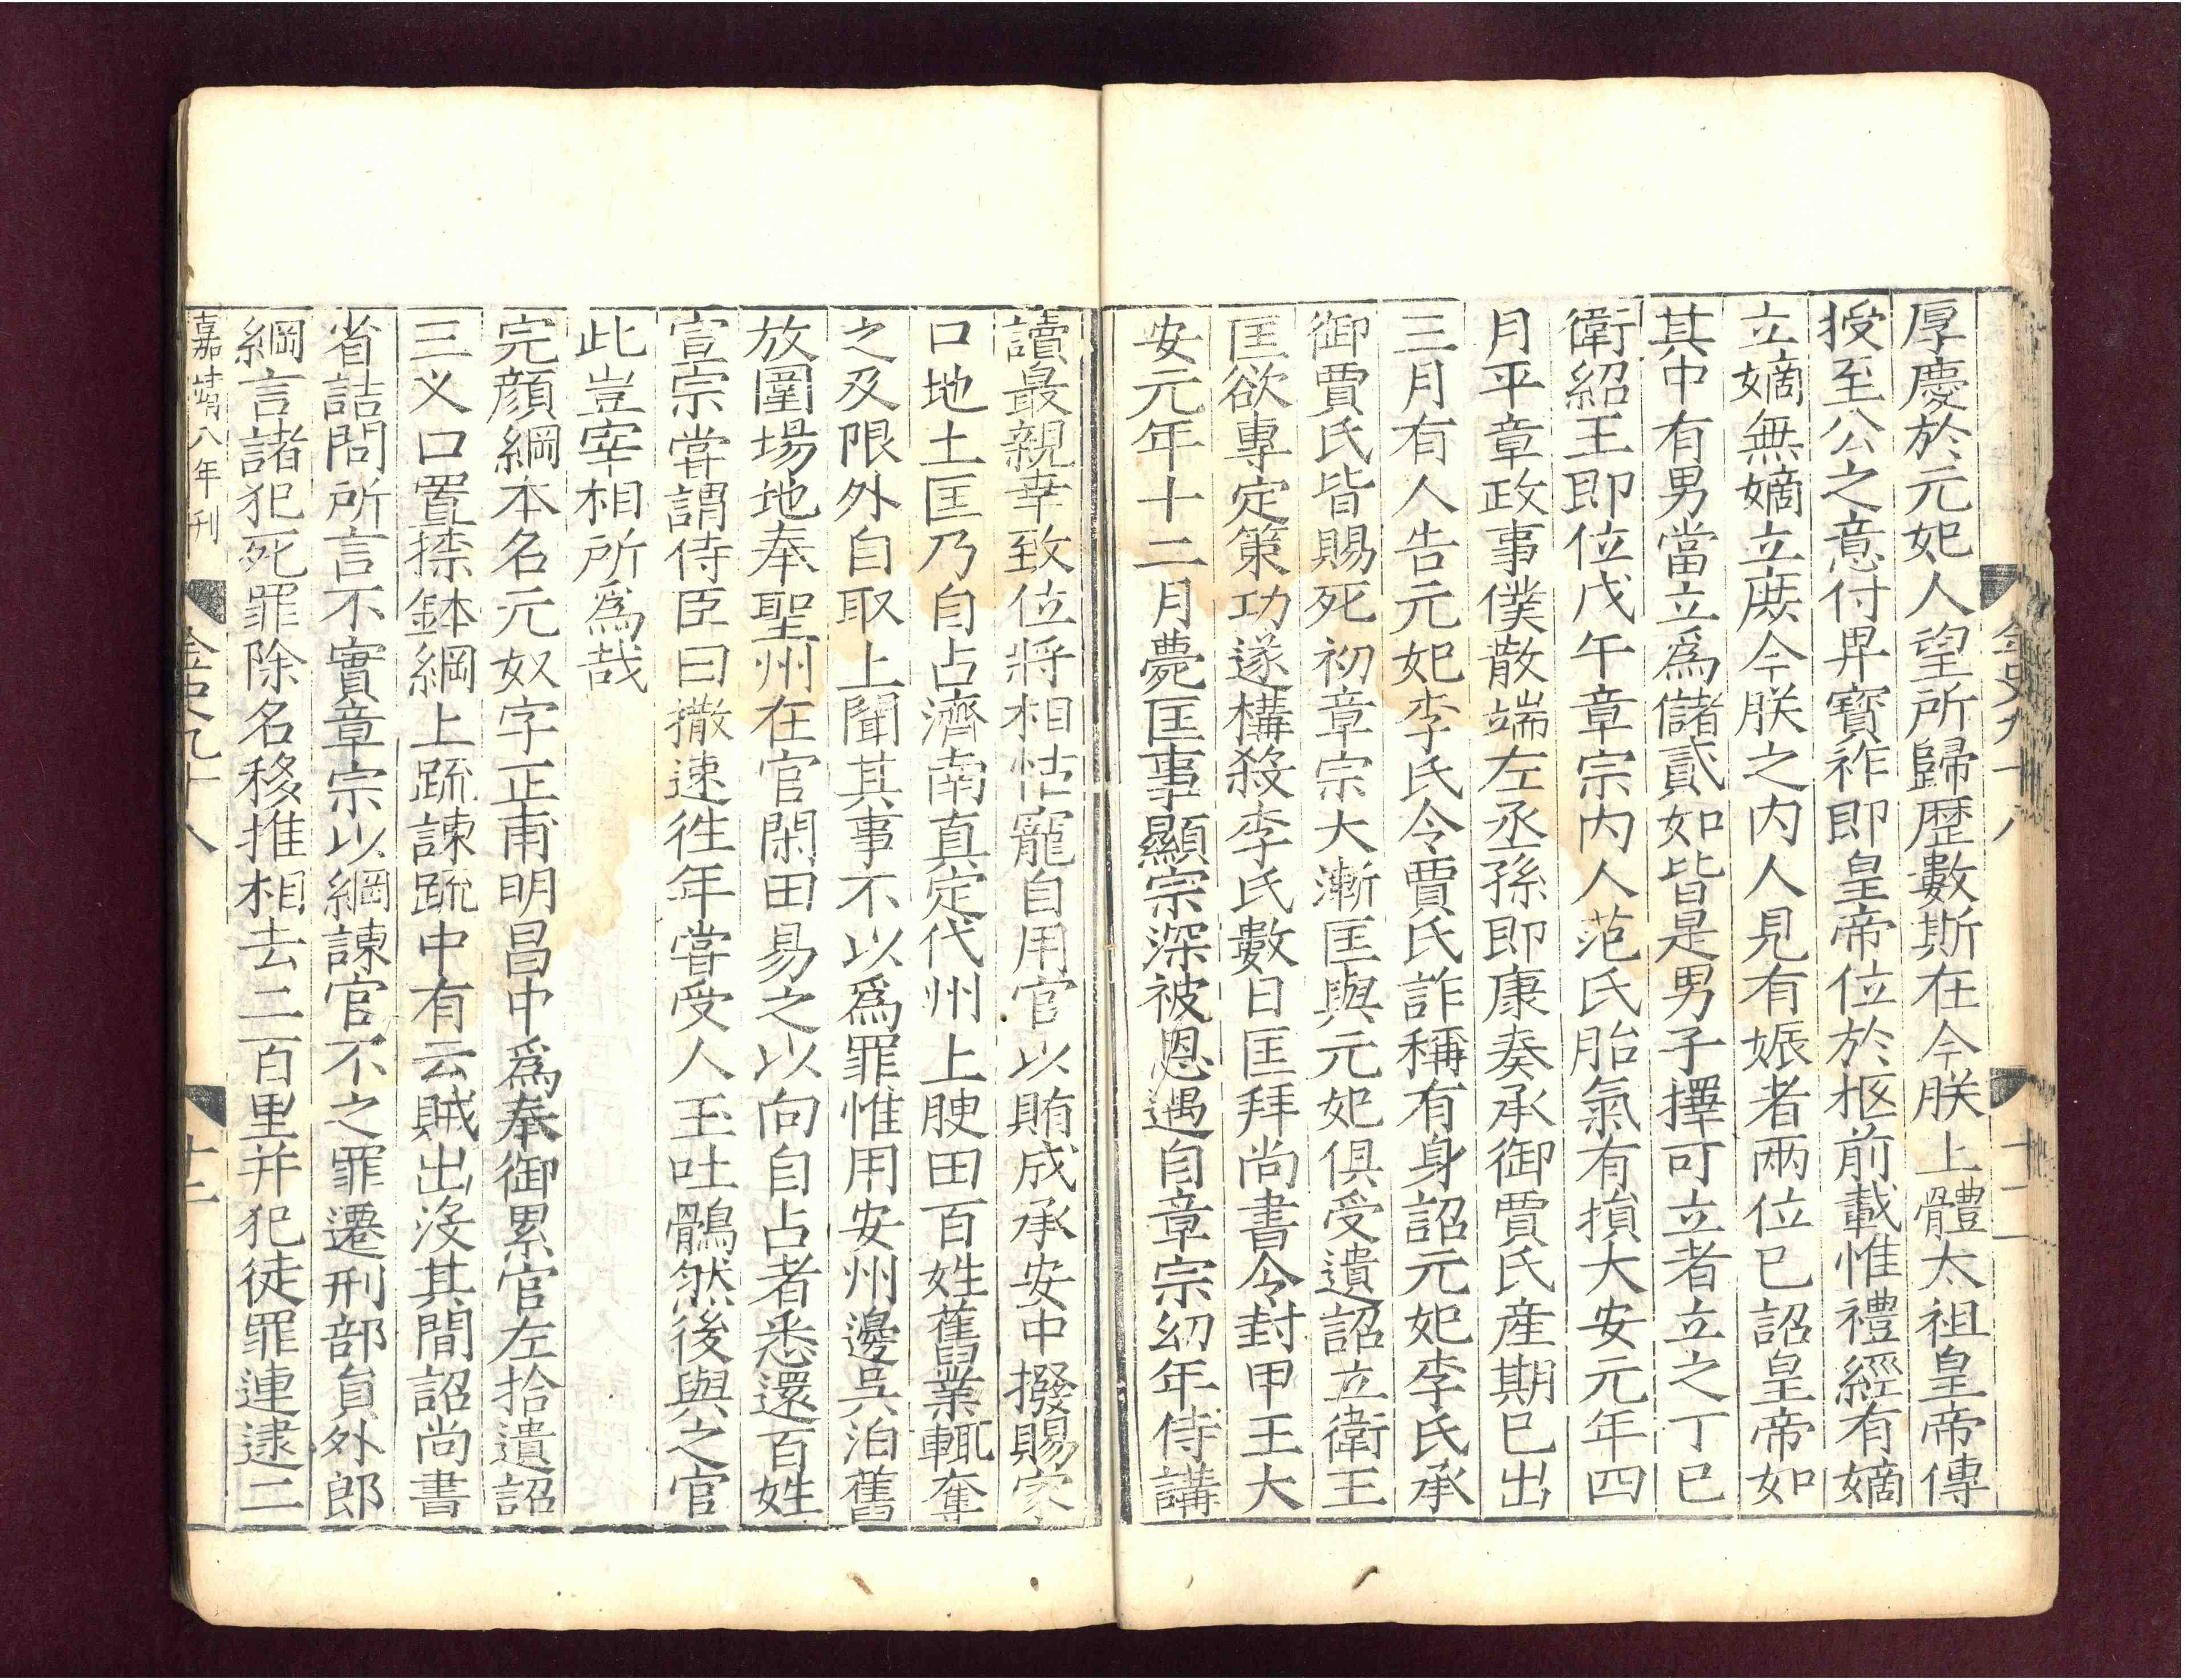 金史九十八
十二
厚慶於元妃人望所歸歷數斯在今朕上體太祖皇帝傳
授至公之意付畀寳祚即皇帝位於柩前載惟禮經有嫡
立嫡無嫡立庻今朕之内人見有娠者兩位已詔皇帝如
其中有男當立爲儲貳如皆是男子擇可立者立之丁巳
衛紹王即位戊午章宗内人范氏胎氣有損大安元年四
月平章政事僕散端左丞孫即康奏承御賈氏産期已出
三月有人告元妃李氏令賈氏詐稱有身詔元妃李氏承
御賈氏皆賜死初章宗大漸匡與元妃俱受遺詔立衛王
匡欲專定策功遂構殺李氏數日匡拜尚書令封申王大
安元年十二月薨匡事顯宗深被恩遇自章宗幼年侍講
讀最親幸致位將相怙寵自用官以賄成承安中撥賜家
口地土匡乃自占濟南真定代州上腴田百姓舊業輒奪
之及限外自取上聞其事不以爲罪惟用安州邊吳泊舊
放圍場地奉聖州在官閑田易之以向自占者悉還百姓
宣宗嘗謂侍臣曰撒速徃年嘗受人玉吐鶻然後與之官
此豈宰相所爲哉
完顔綱本名元奴字正甫明昌中爲奉御累官左拾遺詔
三乂口置捺鉢綱上疏諫疏中有云賊出没其間詔尚書
省詰問所言不實章宗以綱諫官不之罪遷刑部貟外郎
綱言諸犯死罪除名移推相去二百里并犯徒罪連逮二
嘉靖八年刊
金史九十八
十二